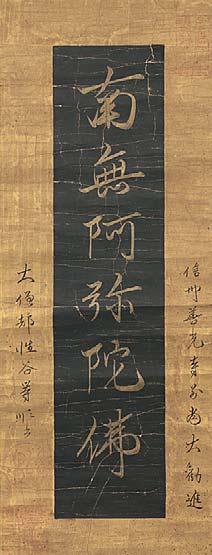 信州善光寺別当大勧進
南無阿弥陀佛
大僧都性谷